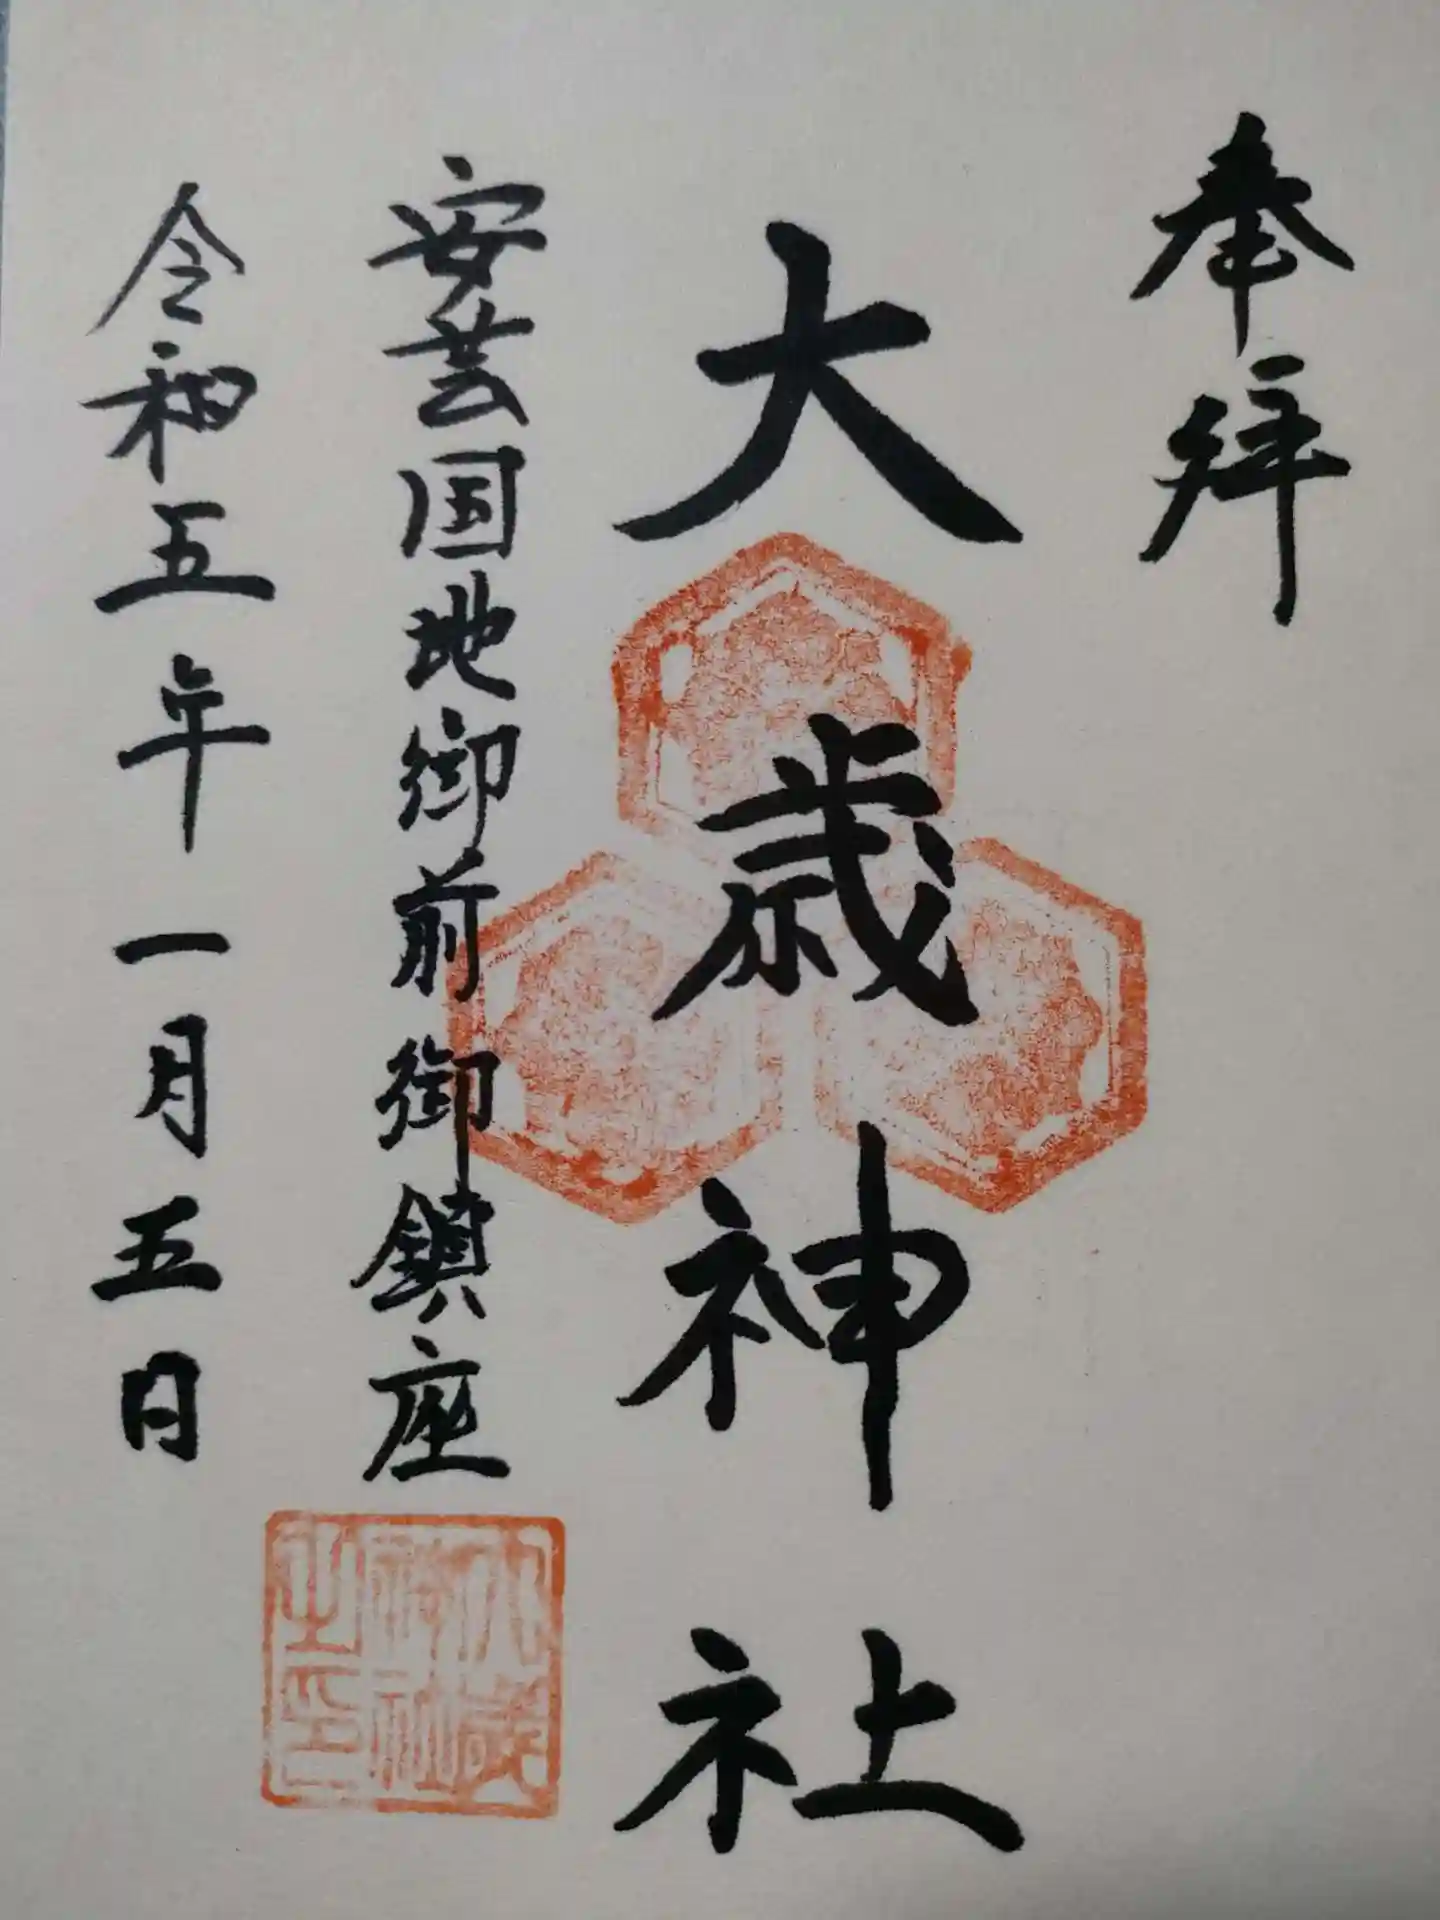 奉拝
大歳神社
安芸国地御前御鎮座
令和五年一月五日
大歳
神社
之印